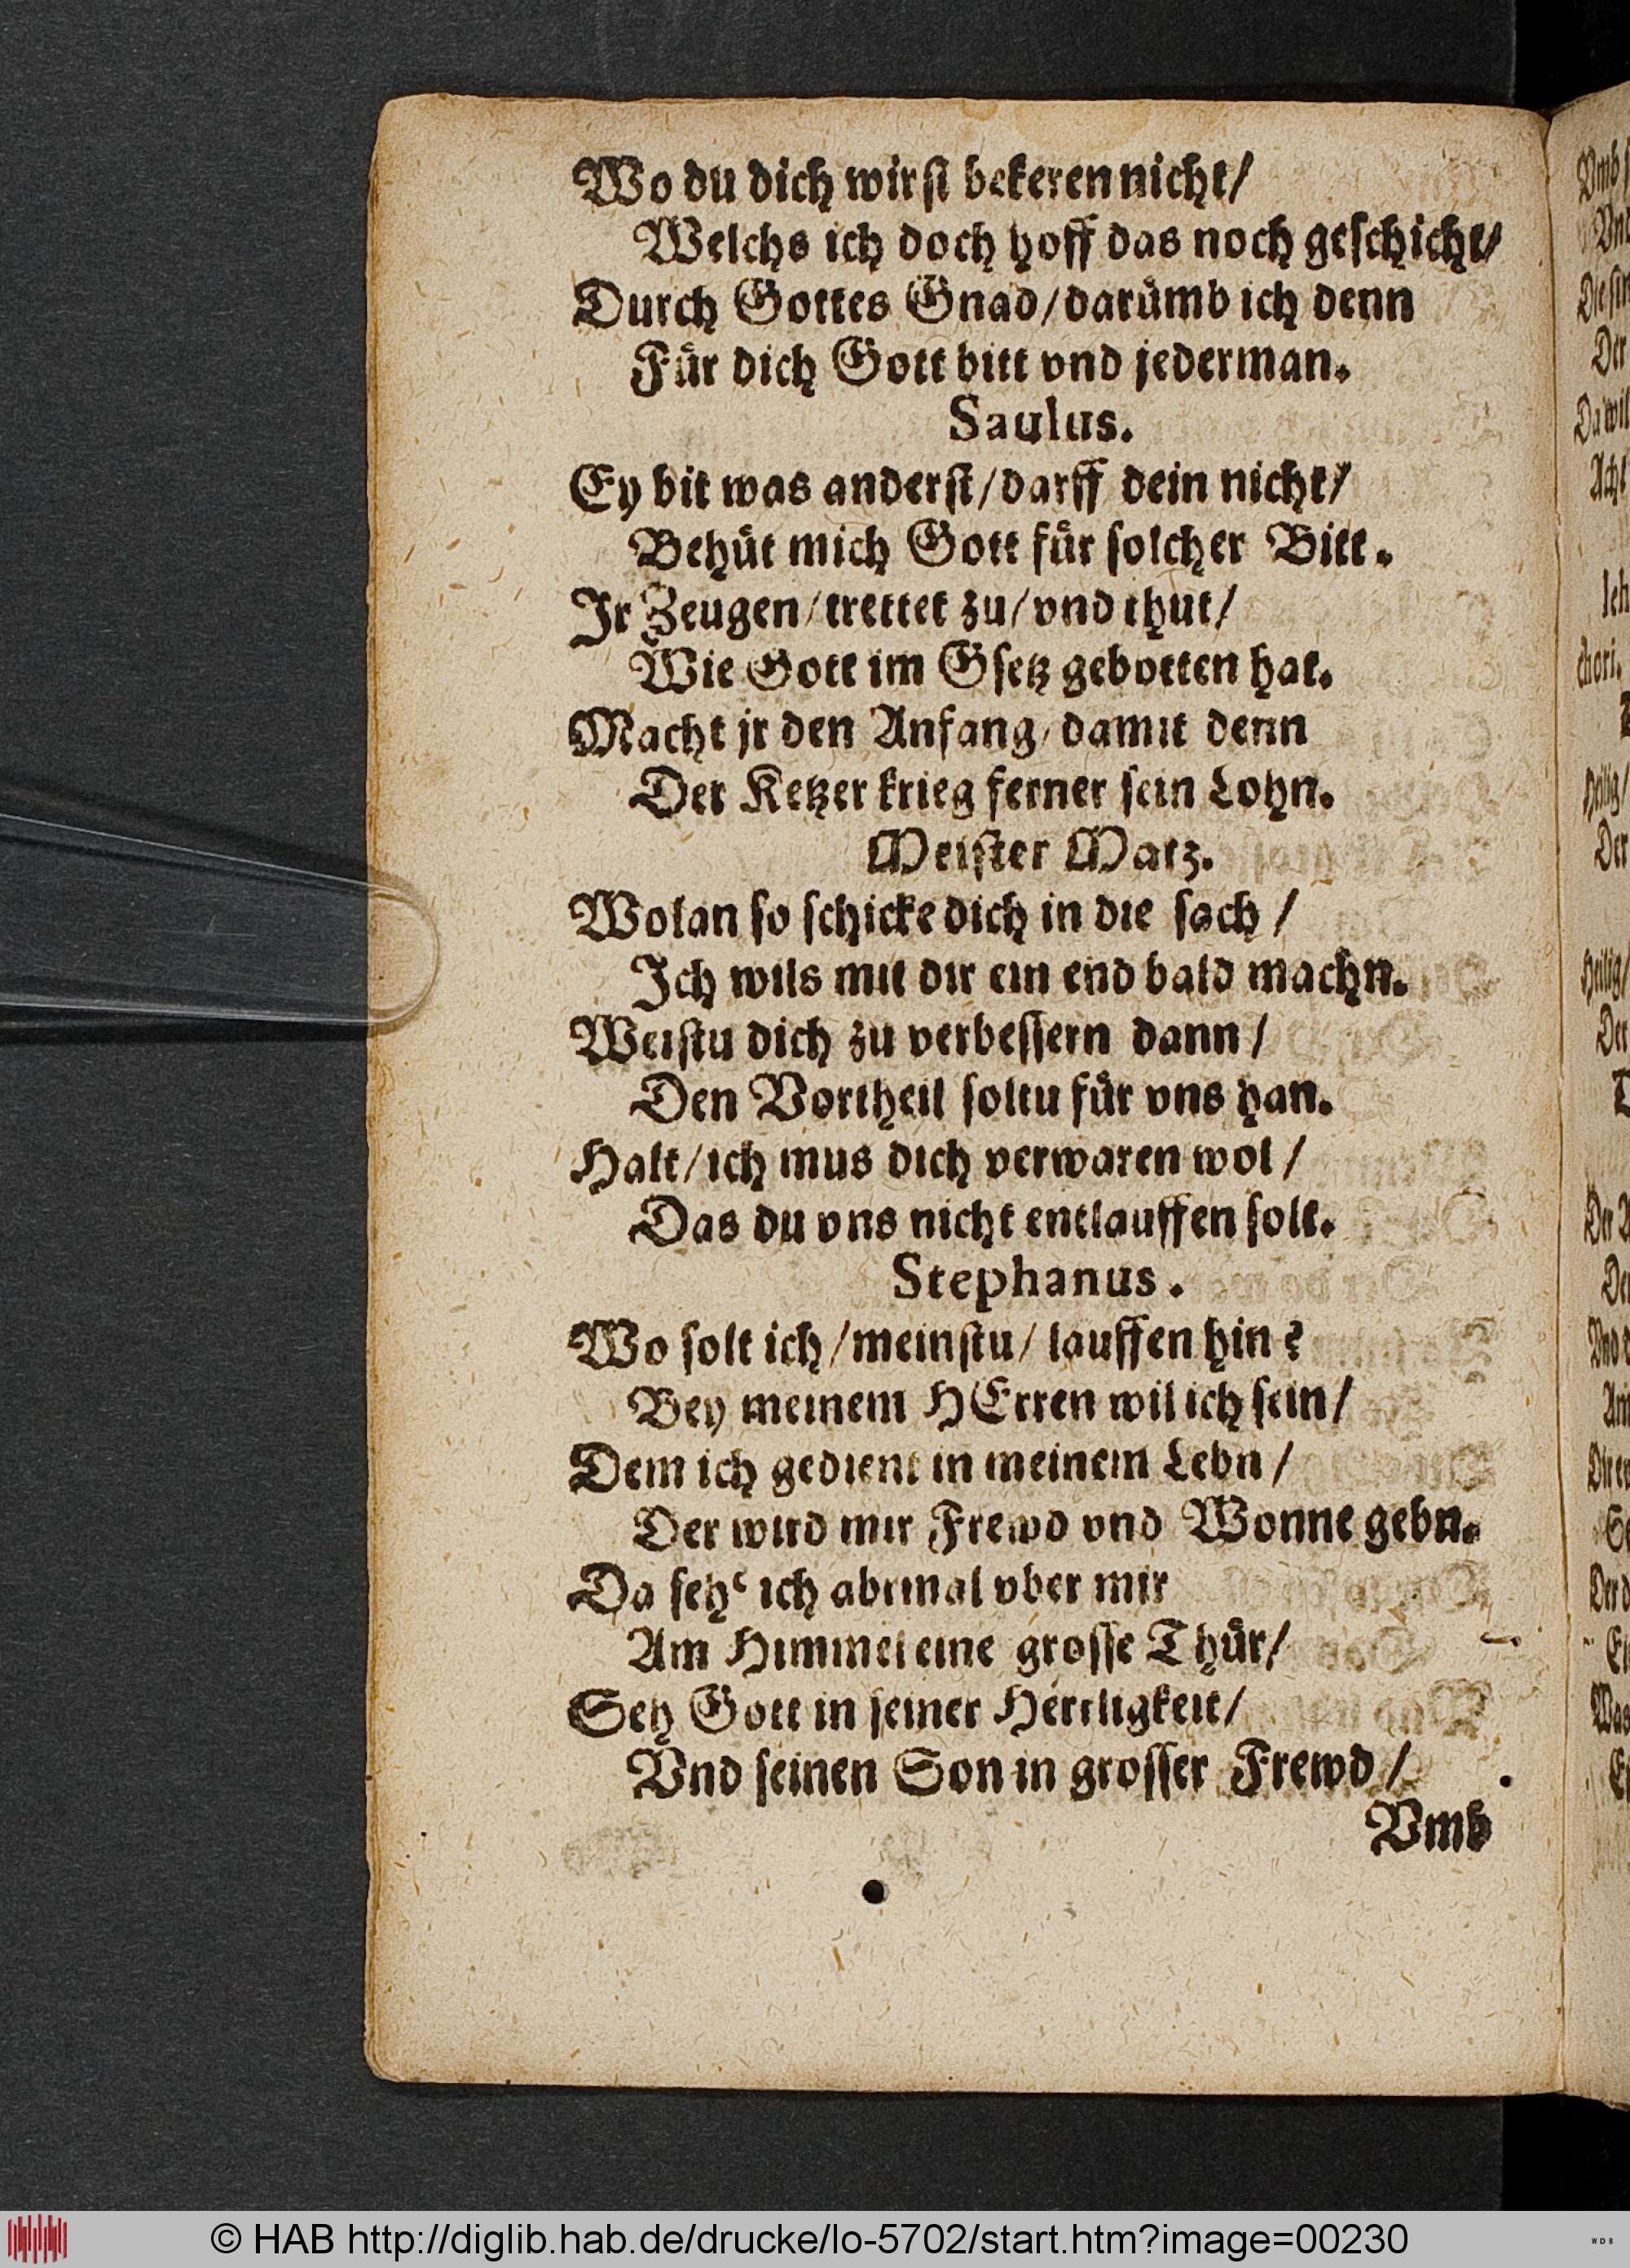 Wo du dich wirst bekeren nicht/
Welchs ich doch hoff das noch geschicht/
Durch Gottes Gnad/darümb ich denn
Für dich Gott bitt vnd jederman.
Saulus.
Ey bit was anderst/darff dein nicht/
Behüt mich Gott für solcher Bitt.
Jr Zeugen/trettet zu/vnd thut/
Wie Gott im Gsetz gebotten hat.
Macht jr den Anfang/damit denn
Der Ketzer krieg ferner sein Lohn.
Meister Matz.
Wolan so schicke dich in die sach/
Jch wils mit dir ein end bald machn.
Weistu dich zu verbessern dann/
Den Vortheil soltu für vns han.
Halt/ich mus dich verwaren wol/
Das du vns nicht entlauffen solt.
Stephanus.
Wo solt ich/meinstu/lauffen hin?
Bey meinem HErren wil ich sein/
Dem ich gedient in meinem Lebn/
Der wird mir Frewd vnd Wonne gebn.
Da seh' ich abrmal vber mir
Am Himmel eine grosse Thür/
Seh Gott in seiner Herrligkeit/
Vnd seinen Son in grosser Frewd/
Vmb
Vmb
Der
Der
Heilig/
Der
Heilig/
Der
© HAB http://diglib.hab.de/drucke/lo-5702/start.htm?image=00230
WDB